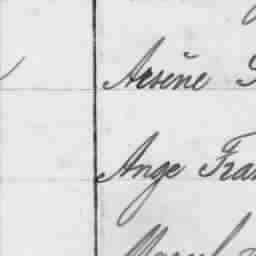 Arsène
Ange Fran